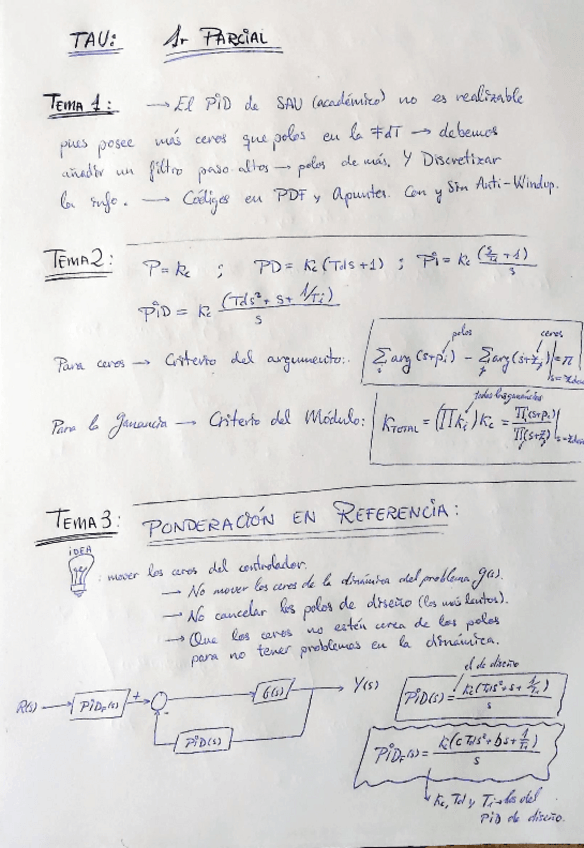 TAU: 1r PARCIAL
TEMA 1: → El PID de SAU (académico) no es realizable
pues posee más ceros que polos en la FdT → debemos
añadir un filtro paso altos → polos de más. Y Discretizar
la info. → Códigos en PDF y Apuntes. Con y Sin Anti-Windup.
TEMA 2: P = Kc ; PD = Kc (Tds + 1) ; PI = Kc (s/ + 1) / s
PID = Kc (Tds² + s + 1/Ti) / s
polos ceros
Para ceros → Criterio del argumento: Σi arg (s+pi) - Σj arg (s+zj) | = π
todas las ganancias
Para la ganancia → Criterio del Módulo: KTOTAL = (ΠKi) Kc = Π(s+pi) / Π(s+zj) |
TEMA 3: PONDERACIÓN EN REFERENCIA:
IDEA
: mover los ceros del controlador.
→ No mover los ceros de la dinámica del problema G(s).
→ No cancelar los polos de diseño (los más lentos).
→ Que los ceros no estén cerca de los polos
para no tener problemas en la dinámica.
el de diseño
R(s) → PIDF(s) + - G(s) → Y(s)
PID(s) = Kc (Tds² + s + 1/Ti) / s
PID(s)
PIDF(s) = Kc (c Tds² + bs + 1/Ti) / s
Kc, Td y Ti → los del
PID de diseño.